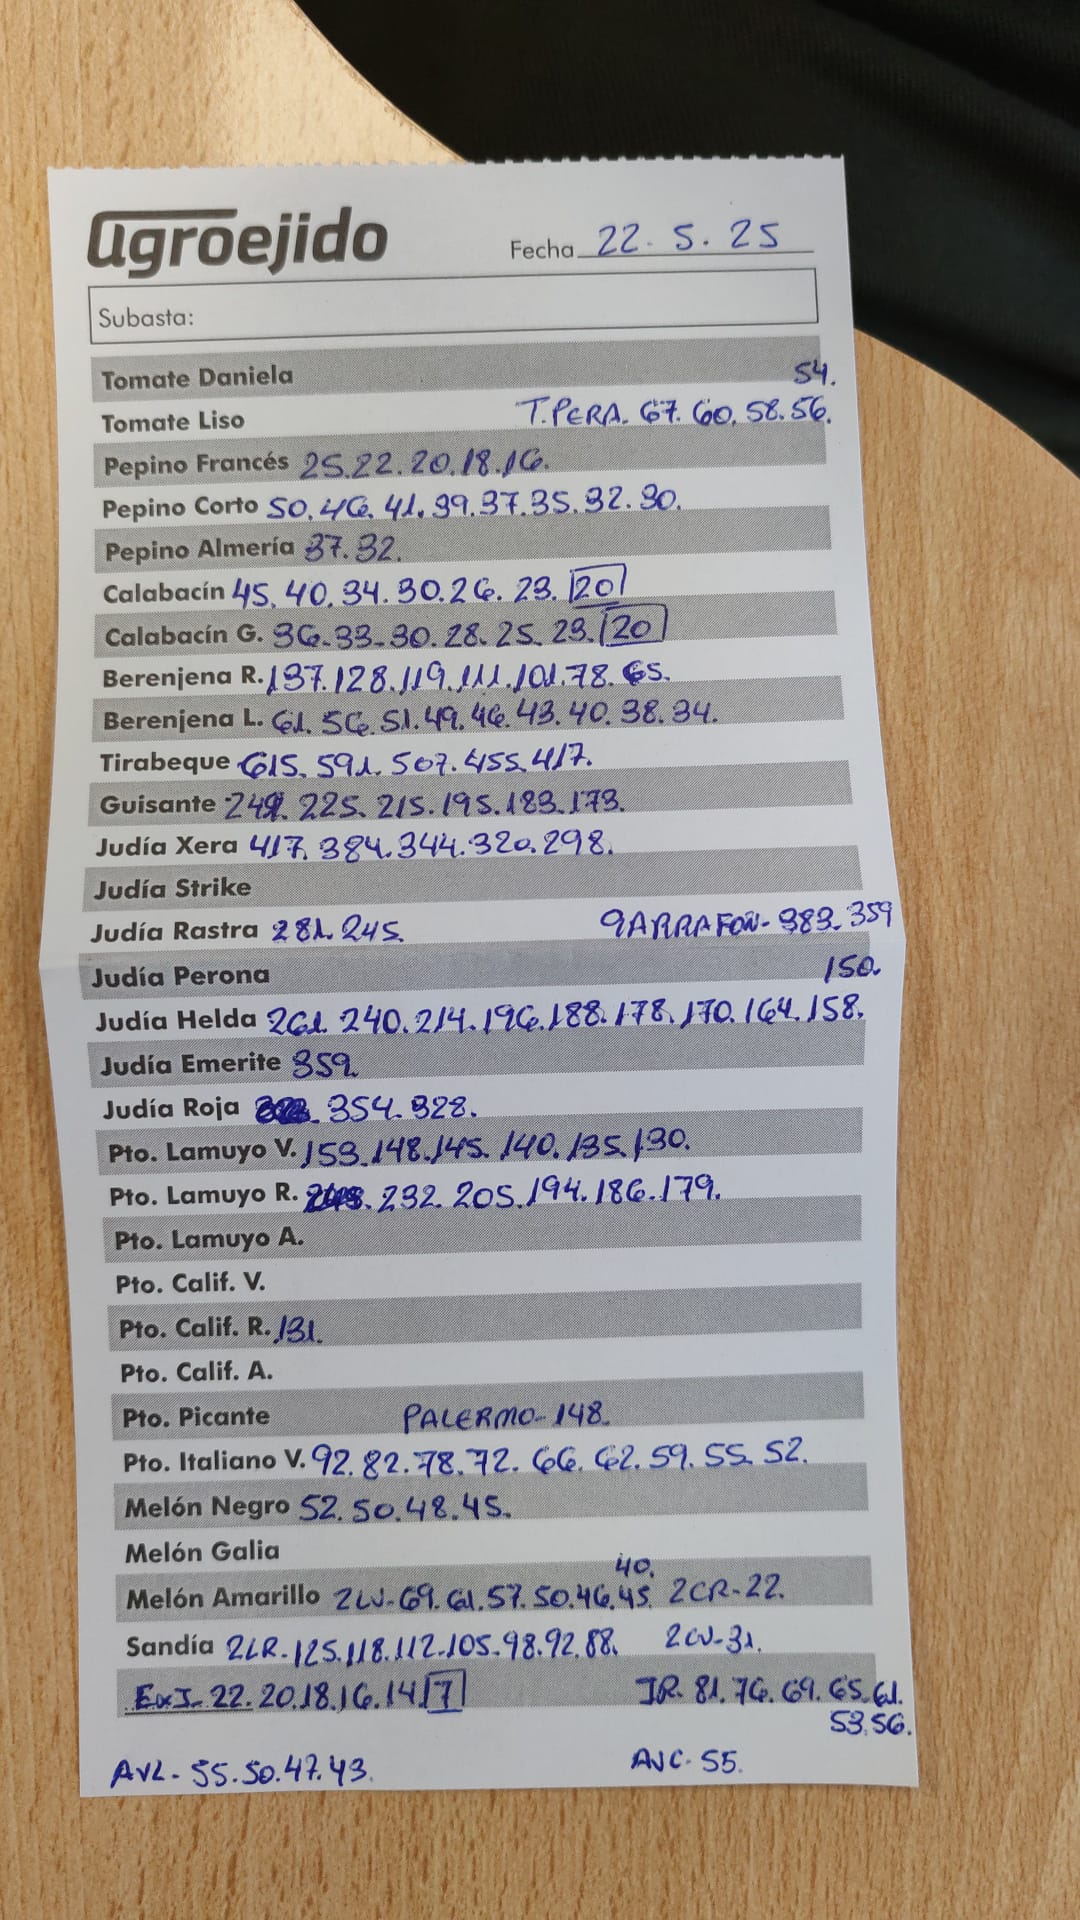 agroejido
Fecha 22. 5. 25
Subasta:
Tomate Daniela 54.
Tomate Liso T.PERA. 67. 60. 58. 56.
Pepino Francés 25.22.20.18.16.
Pepino Corto 50.46.41.39.37.35.32.30.
Pepino Almería 37.32.
Calabacín 45.40.34.30.26.23.20
Calabacín G. 36-33-30.28.25.23.20
Berenjena R. 137.128.119.111.101.78.65.
Berenjena L. 61.56.51.49.46.43.40.38.34.
Tirabeque 615.591.507.455.417.
Guisante 225.215.195.183.173.
Judía Xera 417.384.344.320.298.
Judía Strike
Judía Rastra 281.245. GARRAFON-383.359
Judía Perona 150.
Judía Helda 261.240.214.196.188.178.170.164.158.
Judía Emerite 359.
Judía Roja 354.328.
Pto. Lamuyo V. 153.148.145.140.135.130.
Pto. Lamuyo R. 232.205.194.186.179.
Pto. Lamuyo A.
Pto. Calif. V.
Pto. Calif. R. 131.
Pto. Calif. A.
Pto. Picante PALERMO-148.
Pto. Italiano V. 92.82.78.72.66.62.59.55.52.
Melón Negro 52.50.48.45.
Melón Galia
40.
Melón Amarillo 2LV-69.61.57.50.46.45. 2CR-22.
Sandía 2LR-125.118.112-105.98.92.88. 2CV-31.
22.20.18.16.14 17 JR. 81.76.69.65.61.
53.56.
AVL- 55.50.47.43. AVC-55.